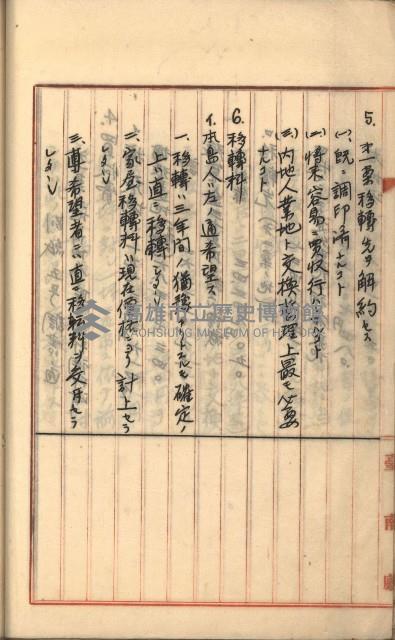 5. 才一案移轉先ヲ解約セズ
(一) 既ニ調印済ナルコト
(二) 将来容易ニ買収行ハレ[]コト
(三) 内地人業地ト交換整理上最モ必要
ナルコト
6. 移轉料
イ. 本島人ハ左ノ通希望ス
一. 移轉ハ三年間ノ猶豫
上ハ直ニ移轉
二. 家屋移轉料ハ現在価格ニヨリ計上セラ
レタシ
三. 真ノ希望者ニハ直ニ移転料ヲ交付セラ
レタシ
臺南廳
高雄市立歷史博物館
KAOHSIUNG MUSEUM OF HISTORY